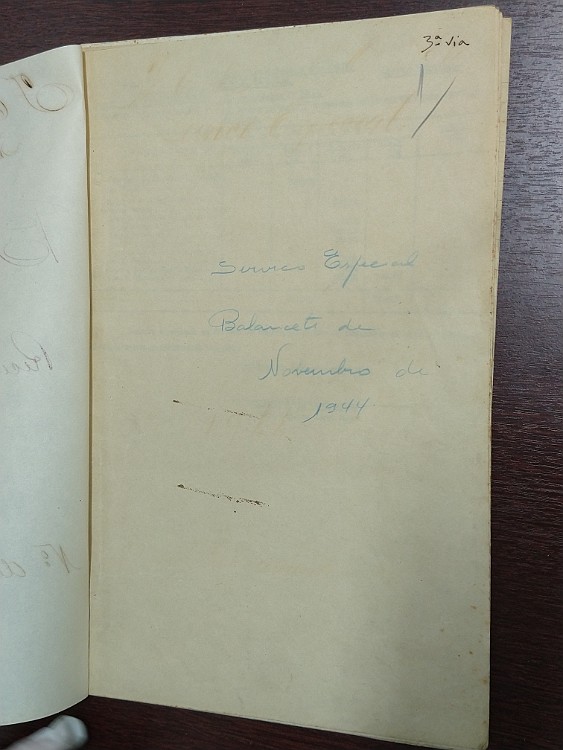 3ª via
Serviço Especial
Balancete de
Novembro de
1944
Nº